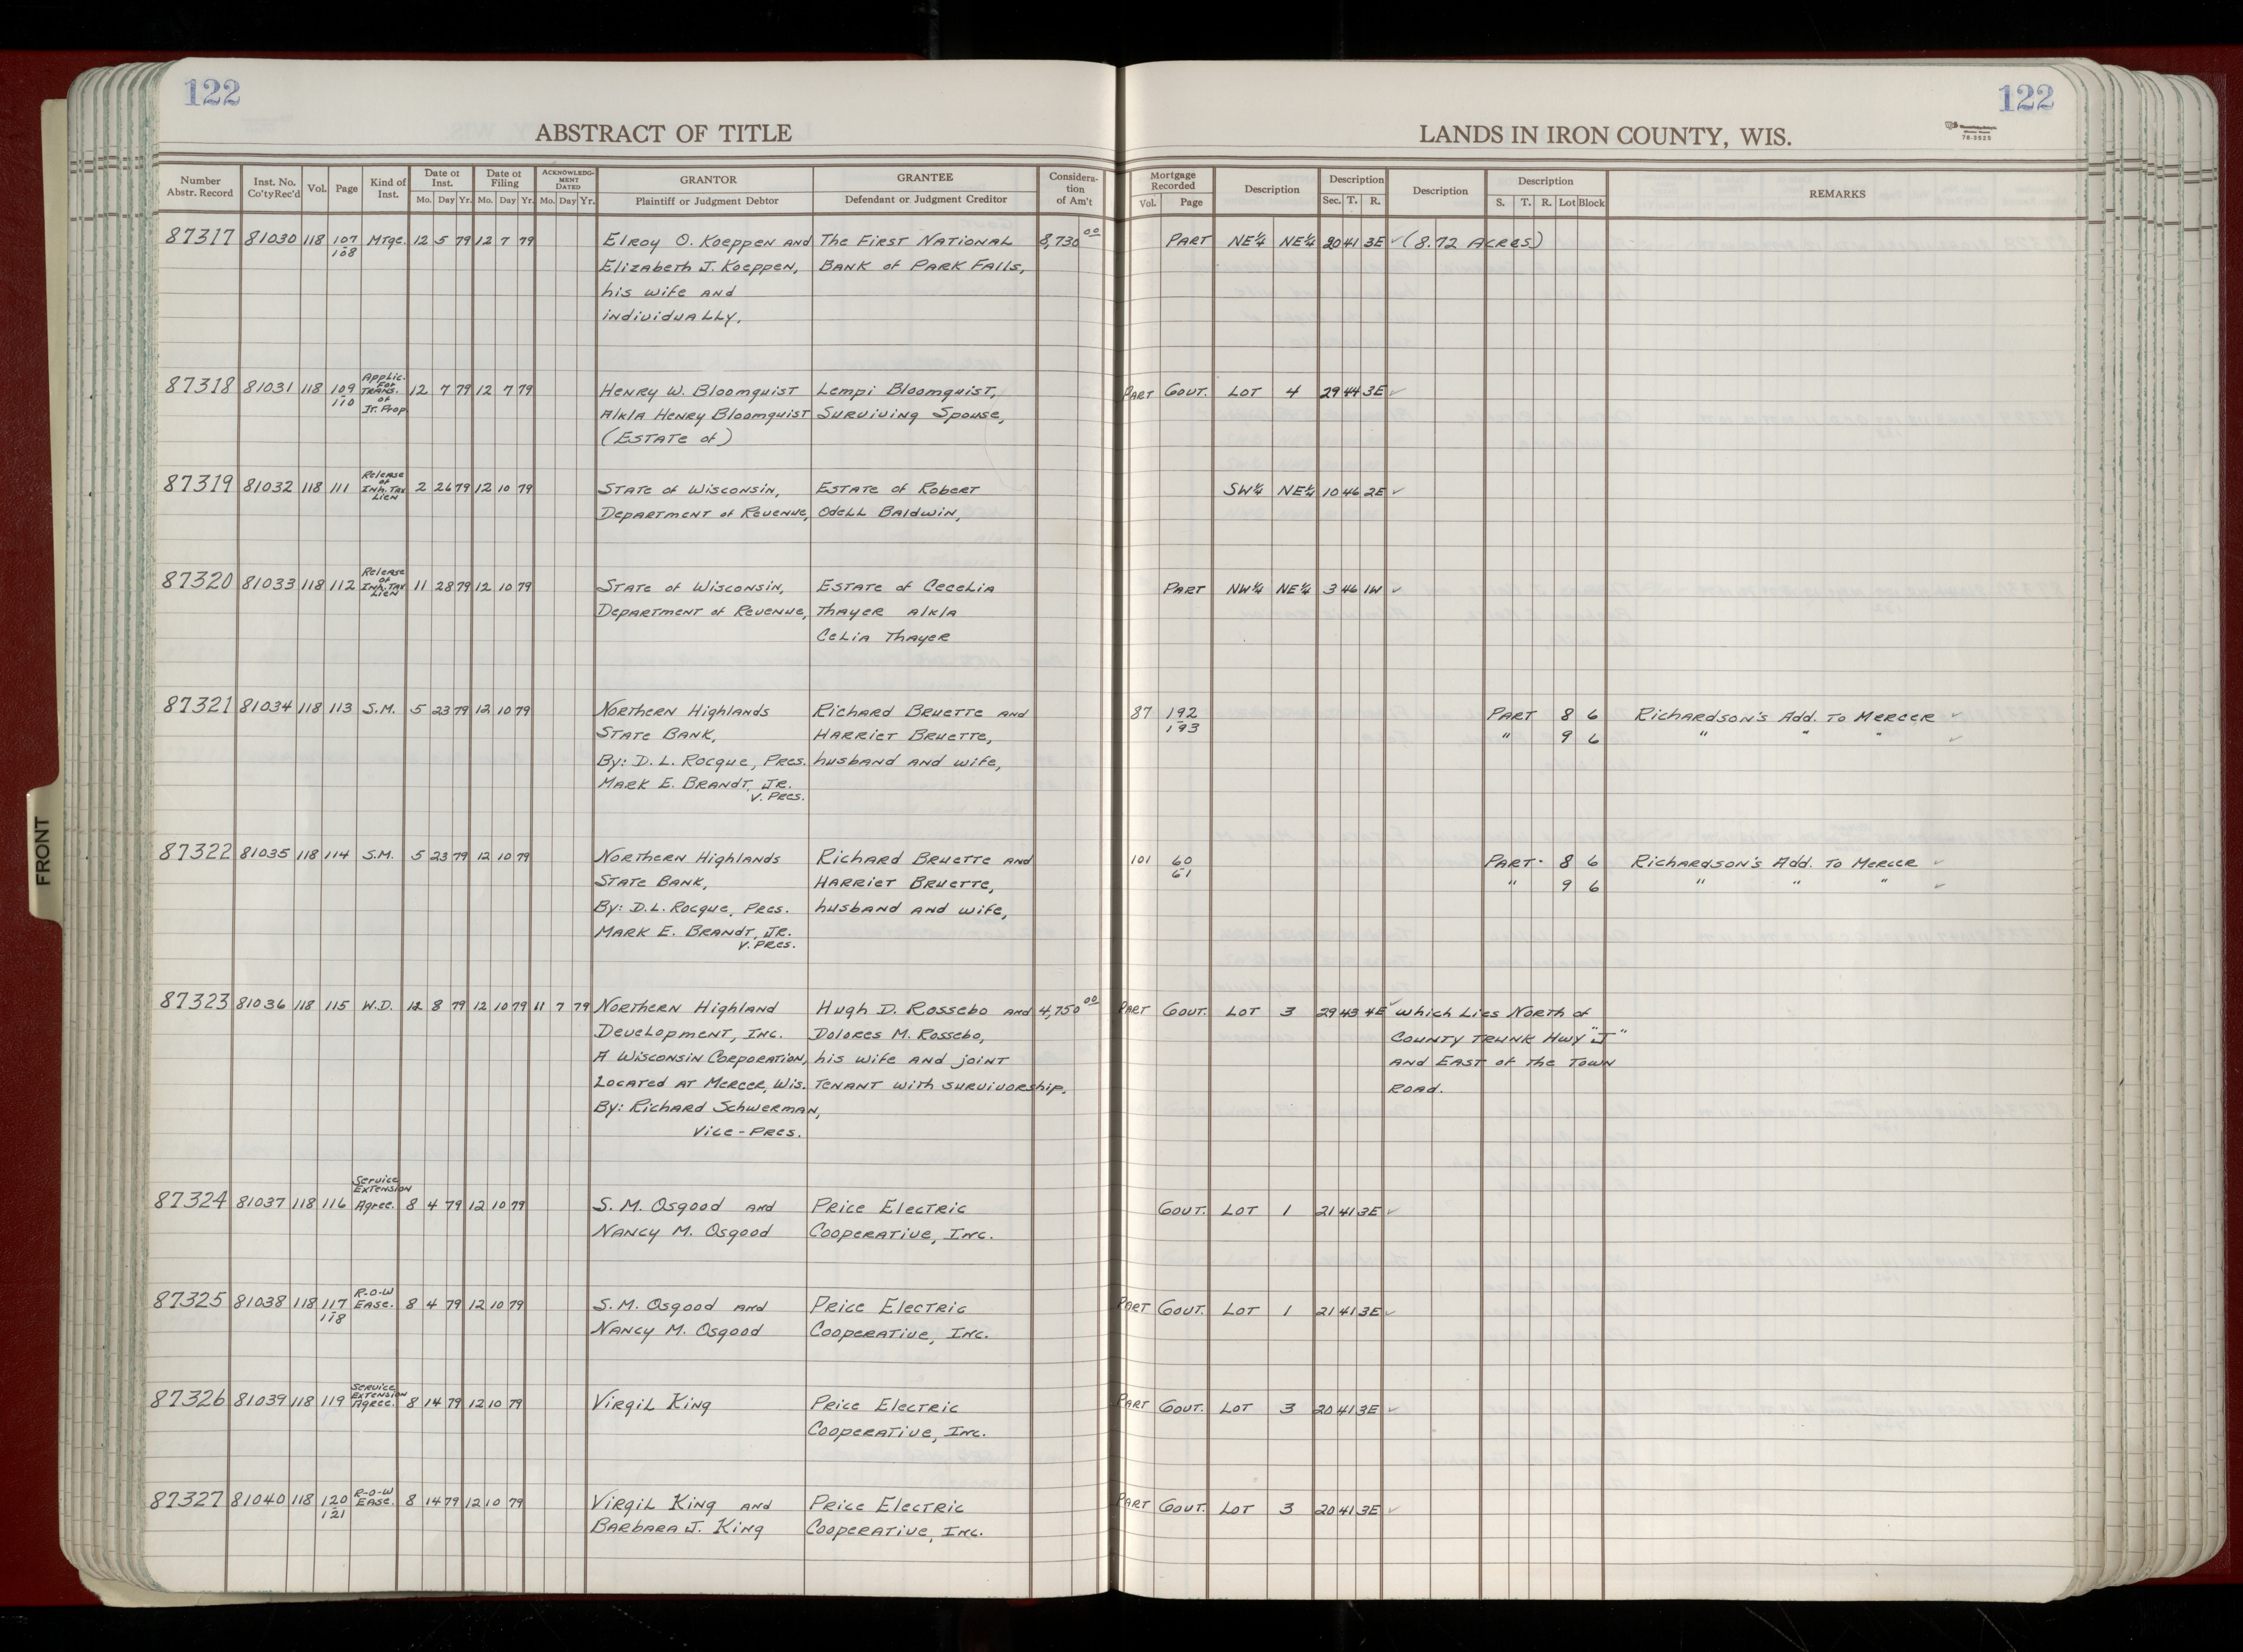 122
122
ABSTRACT OF TITLE
LANDS IN IRON COUNTY, WIS.
78-3525
Number Abstr. Record | Inst. No. Co'tyRec'd | Vol. | Page | Kind of Inst. | Date of Inst. Mo. Day Yr. | Date of Filing Mo. Day Yr. | ACKNOWLEDG-MENT DATED Mo. Day Yr. | GRANTOR Plaintiff or Judgment Debtor | GRANTEE Defendant or Judgment Creditor | Considera-tion of Am't | Mortgage Recorded Vol. Page | Description | Description Sec. T. R. | Description | Description S. T. R. Lot Block | REMARKS
87317 81030 118 107 Mtge. 12 5 79 12 7 79 Elroy O. Koeppen and The First National 8,730 00 Part NE¼ NE¼ 20 41 3E ✓ (8.72 Acres)
108 Elizabeth J. Koeppen, Bank of Park Falls,
his wife and
individually.
Applic.
For
87318 81031 118 109 Trans. 12 7 79 12 7 79 Henry W. Bloomquist Lempi Bloomquist, Part Gov't. Lot 4 29 44 3E ✓
110 of
Jt. Prop a/k/a Henry Bloomquist Surviving Spouse,
(Estate of)
Release
of
87319 81032 118 111 Inh. Tax 2 26 79 12 10 79 State of Wisconsin, Estate of Robert SW¼ NE¼ 10 46 2E ✓
Lien
Department of Revenue, Odell Baldwin,
Release
of
87320 81033 118 112 Inh. Tax 11 28 79 12 10 79 State of Wisconsin, Estate of Cecelia Part NW¼ NE¼ 3 46 1W ✓
Lien
Department of Revenue, Thayer a/k/a
Celia Thayer
87321 81034 118 113 S.M. 5 23 79 12 10 79 Northern Highlands Richard Bruette and 87 192 Part 8 6 Richardson's Add. To Mercer ✓
State Bank, Harriet Bruette, 193 " 9 6 " " " ✓
By: D. L. Rocque, Pres. husband and wife,
Mark E. Brandt, Jr.
V. Pres.
87322 81035 118 114 S.M. 5 23 79 12 10 79 Northern Highlands Richard Bruette and 101 60 Part 8 6 Richardson's Add. To Mercer ✓
State Bank, Harriet Bruette, 61 " 9 6 " " " ✓
By: D.L. Rocque, Pres. husband and wife,
Mark E. Brandt, Jr.
V. Pres.
87323 81036 118 115 W.D. 12 8 79 12 10 79 11 7 79 Northern Highland Hugh D. Rossebo and 4,750 00 Part Gov't. Lot 3 29 43 4E ✓ which Lies North of
Development, Inc. Dolores M. Rossebo, County Trunk Hwy "J"
A Wisconsin Corporation, his wife and joint and East of the Town
Located at Mercer, Wis. tenant with survivorship. Road.
By: Richard Schwerman,
Vice-Pres.
Service
Extension
87324 81037 118 116 Agree. 8 4 79 12 10 79 S. M. Osgood and Price Electric Gov't. Lot 1 21 41 3E ✓
Nancy M. Osgood Cooperative, Inc.
R-O-W
87325 81038 118 117 Ease. 8 4 79 12 10 79 S. M. Osgood and Price Electric Part Gov't. Lot 1 21 41 3E ✓
118 Nancy M. Osgood Cooperative, Inc.
Service
Extension
87326 81039 118 119 Agree. 8 14 79 12 10 79 Virgil King Price Electric Part Gov't. Lot 3 20 41 3E ✓
Cooperative, Inc.
R-O-W
87327 81040 118 120 Ease. 8 14 79 12 10 79 Virgil King and Price Electric Part Gov't. Lot 3 20 41 3E ✓
121 Barbara J. King Cooperative, Inc.
FRONT